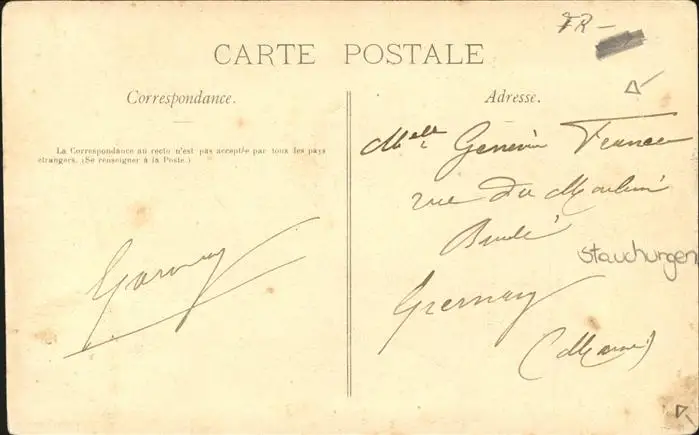 FR-
CARTE POSTALE
Correspondance.
La Correspondance au recto n'est pas acceptée par tous les pays
étrangers. (Se renseigner à la Poste.)
Adresse.
Melle
rue du Moulin
Brulé
stauchungen
(Marne)